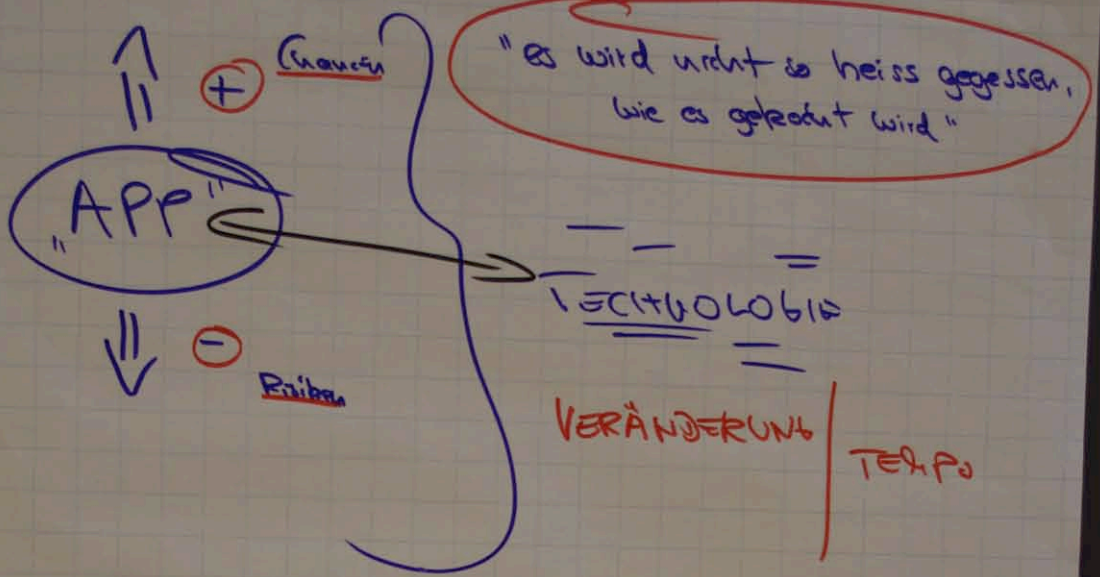 + Chancen
"es wird nicht so heiss gegessen,
wie es gekocht wird"
„APP"
TECHNOLOGIE
- Risiken
VERÄNDERUNG
TEMPO